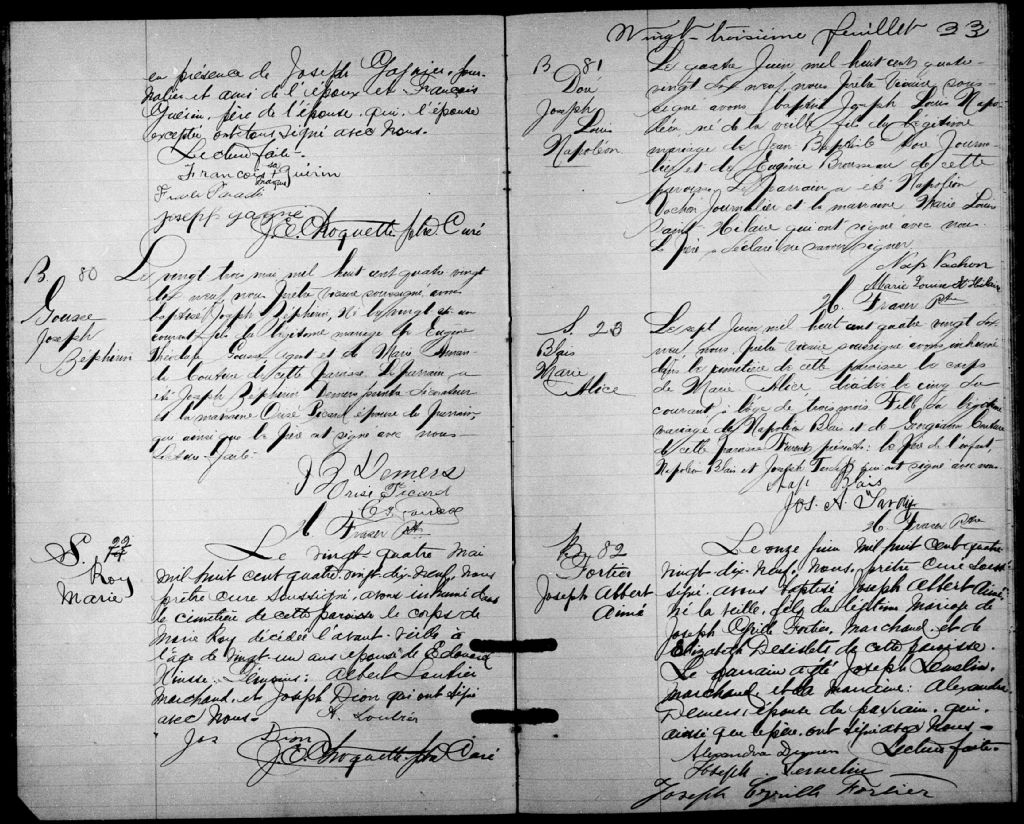 en présence de Joseph Gagnier, jour-
nalier et ami de l'époux et François
Guérin, père de l'épouse, qui, l'épouse
exceptée, ont tous signé avec nous.
Lecture faite.
François sa + marque Guérin
Joseph Gagné
J.E. Choquette ptre Curé
B 80
Gousse
Joseph
Zephirin
Le vingt trois mai mil huit cent quatre vingt
dix neuf, nous Prêtre vicaire soussigné avons
baptisé Joseph Zephirin, né le vingt et un
courant, fils du légitime mariage de Eugène
Théodule Gousse Agent et de Marie
Couture de cette paroisse. Le parrain a
été Joseph Zephirin Demers peintre décorateur
et la marraine Orisé Picard épouse du parrain,
qui ainsi que le père ont signé avec nous.
Lecture faite.
J Z Demers
Orise Picard
H Fraser Ptr
S. 22
Roy
Marie
Le vingt-quatre Mai
mil huit cent quatre-vingt-dix-neuf, nous
prêtre curé soussigné, avons inhumé dans
le cimetière de cette paroisse le corps de
Marie Roy décédée l'avant-veille à
l'âge de vingt-un ans épouse de Edouard
Témoins: Albert Loubier
marchand, et Joseph Dion qui ont signé
avec nous.
A. Loubier
Jos Dion
J.E. Choquette ptre Curé
Vingt-troisième feuillet 23
B 81
Doré
Joseph
Louis
Napoléon
Le quatre Juin mil huit cent quatre-
vingt dix neuf, nous Prêtre Vicaire sous-
signé avons baptisé Joseph Louis Napo-
léon, né de la veille, fils du légitime
mariage de Jean Baptiste Doré Journa-
lier et de Eugénie Brousseau de cette
paroisse. Le parrain a été Napoléon
Vachon Journalier et la marraine Marie Louise
Saint Hilaire qui ont signé avec nous.
Le père a déclaré ne savoir signer.
Nap Vachon
Marie Louise St Hilaire
H. Fraser Ptre
S. 23
Blais
Marie
Alice
Le sept Juin mil huit cent quatre vingt dix
neuf, nous Prêtre Vicaire soussigné avons inhumé
dans le cimetière de cette paroisse le corps
de Marie Alice, décédée le cinq du
courant à l'âge de trois mois. Fille du légitime
mariage de Napoléon Blais et de Couture
de cette paroisse. Furent présents: le père de l'enfant,
Napoléon Blais et Joseph Tardif qui ont signé avec nous
Nap Blais
Jos. A Tardif
H. Fraser Ptre
B. 82
Fortier
Joseph Albert
Aimé
Le onze juin mil huit cent quatre
vingt-dix-neuf, nous, prêtre curé sous-
signé avons baptisé Joseph Albert Aimé
né la veille, fils du légitime Mariage de
Joseph Cyrille Fortier, marchand, et de
Elizabeth Desilets de cette paroisse.
Le parrain a été Joseph Lemelin,
marchand, et la marraine: Alexandra
Demers, épouse du parrain, qui,
ainsi que le père, ont signé avec nous.
Lecture faite.
Alexandra Demers
Joseph Lemelin
Joseph Cyrille Fortier